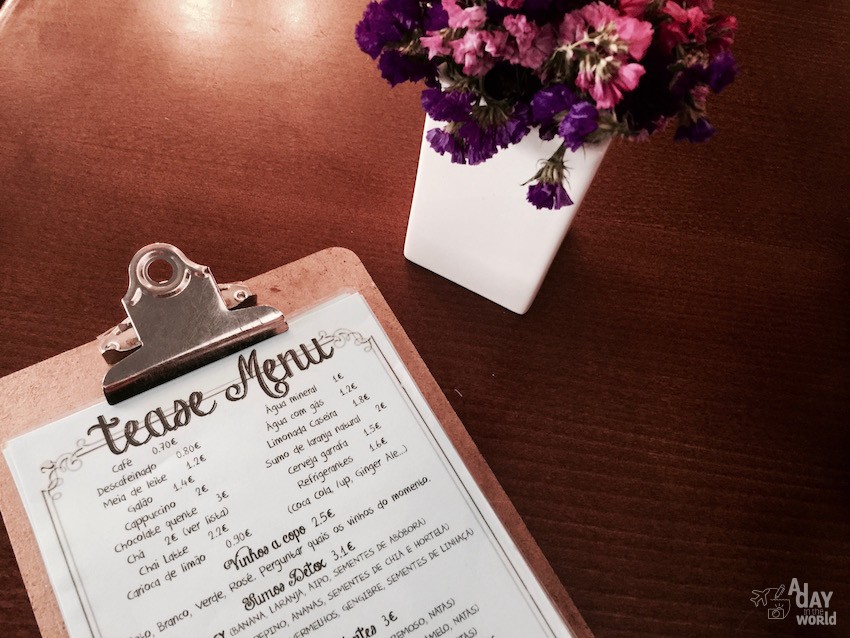 tease Menu
Café 0.70€
Descafeinado 0.80€
Meia de leite 1.2€
Galão 1.4€
Cappuccino 2€
Chocolate quente 3€
Chá 2€ (ver lista)
Chai Latte 2.2€
Carioca de limão 0.90€
Água mineral 1€
Água com gás 1.2€
Limonada Caseira 1.8€
Sumo de laranja natural 2€
Cerveja garrafa 1.5€
Refrigerantes 1.6€
(Coca Cola, 7up, Ginger Ale...)
Vinhos a copo 2.5€
Branco, Verde, Rosé. Perguntar quais os vinhos do momento.
Sumos Detox 3.1€
(BANANA, LARANJA, AIPO, SEMENTES DE ABÓBORA)
ANANÁS, SEMENTES DE CHIA E HORTELÃ)
GENGIBRE, SEMENTES DE LINHAÇA)
3€
NATAS)
NATAS)
A day in the world